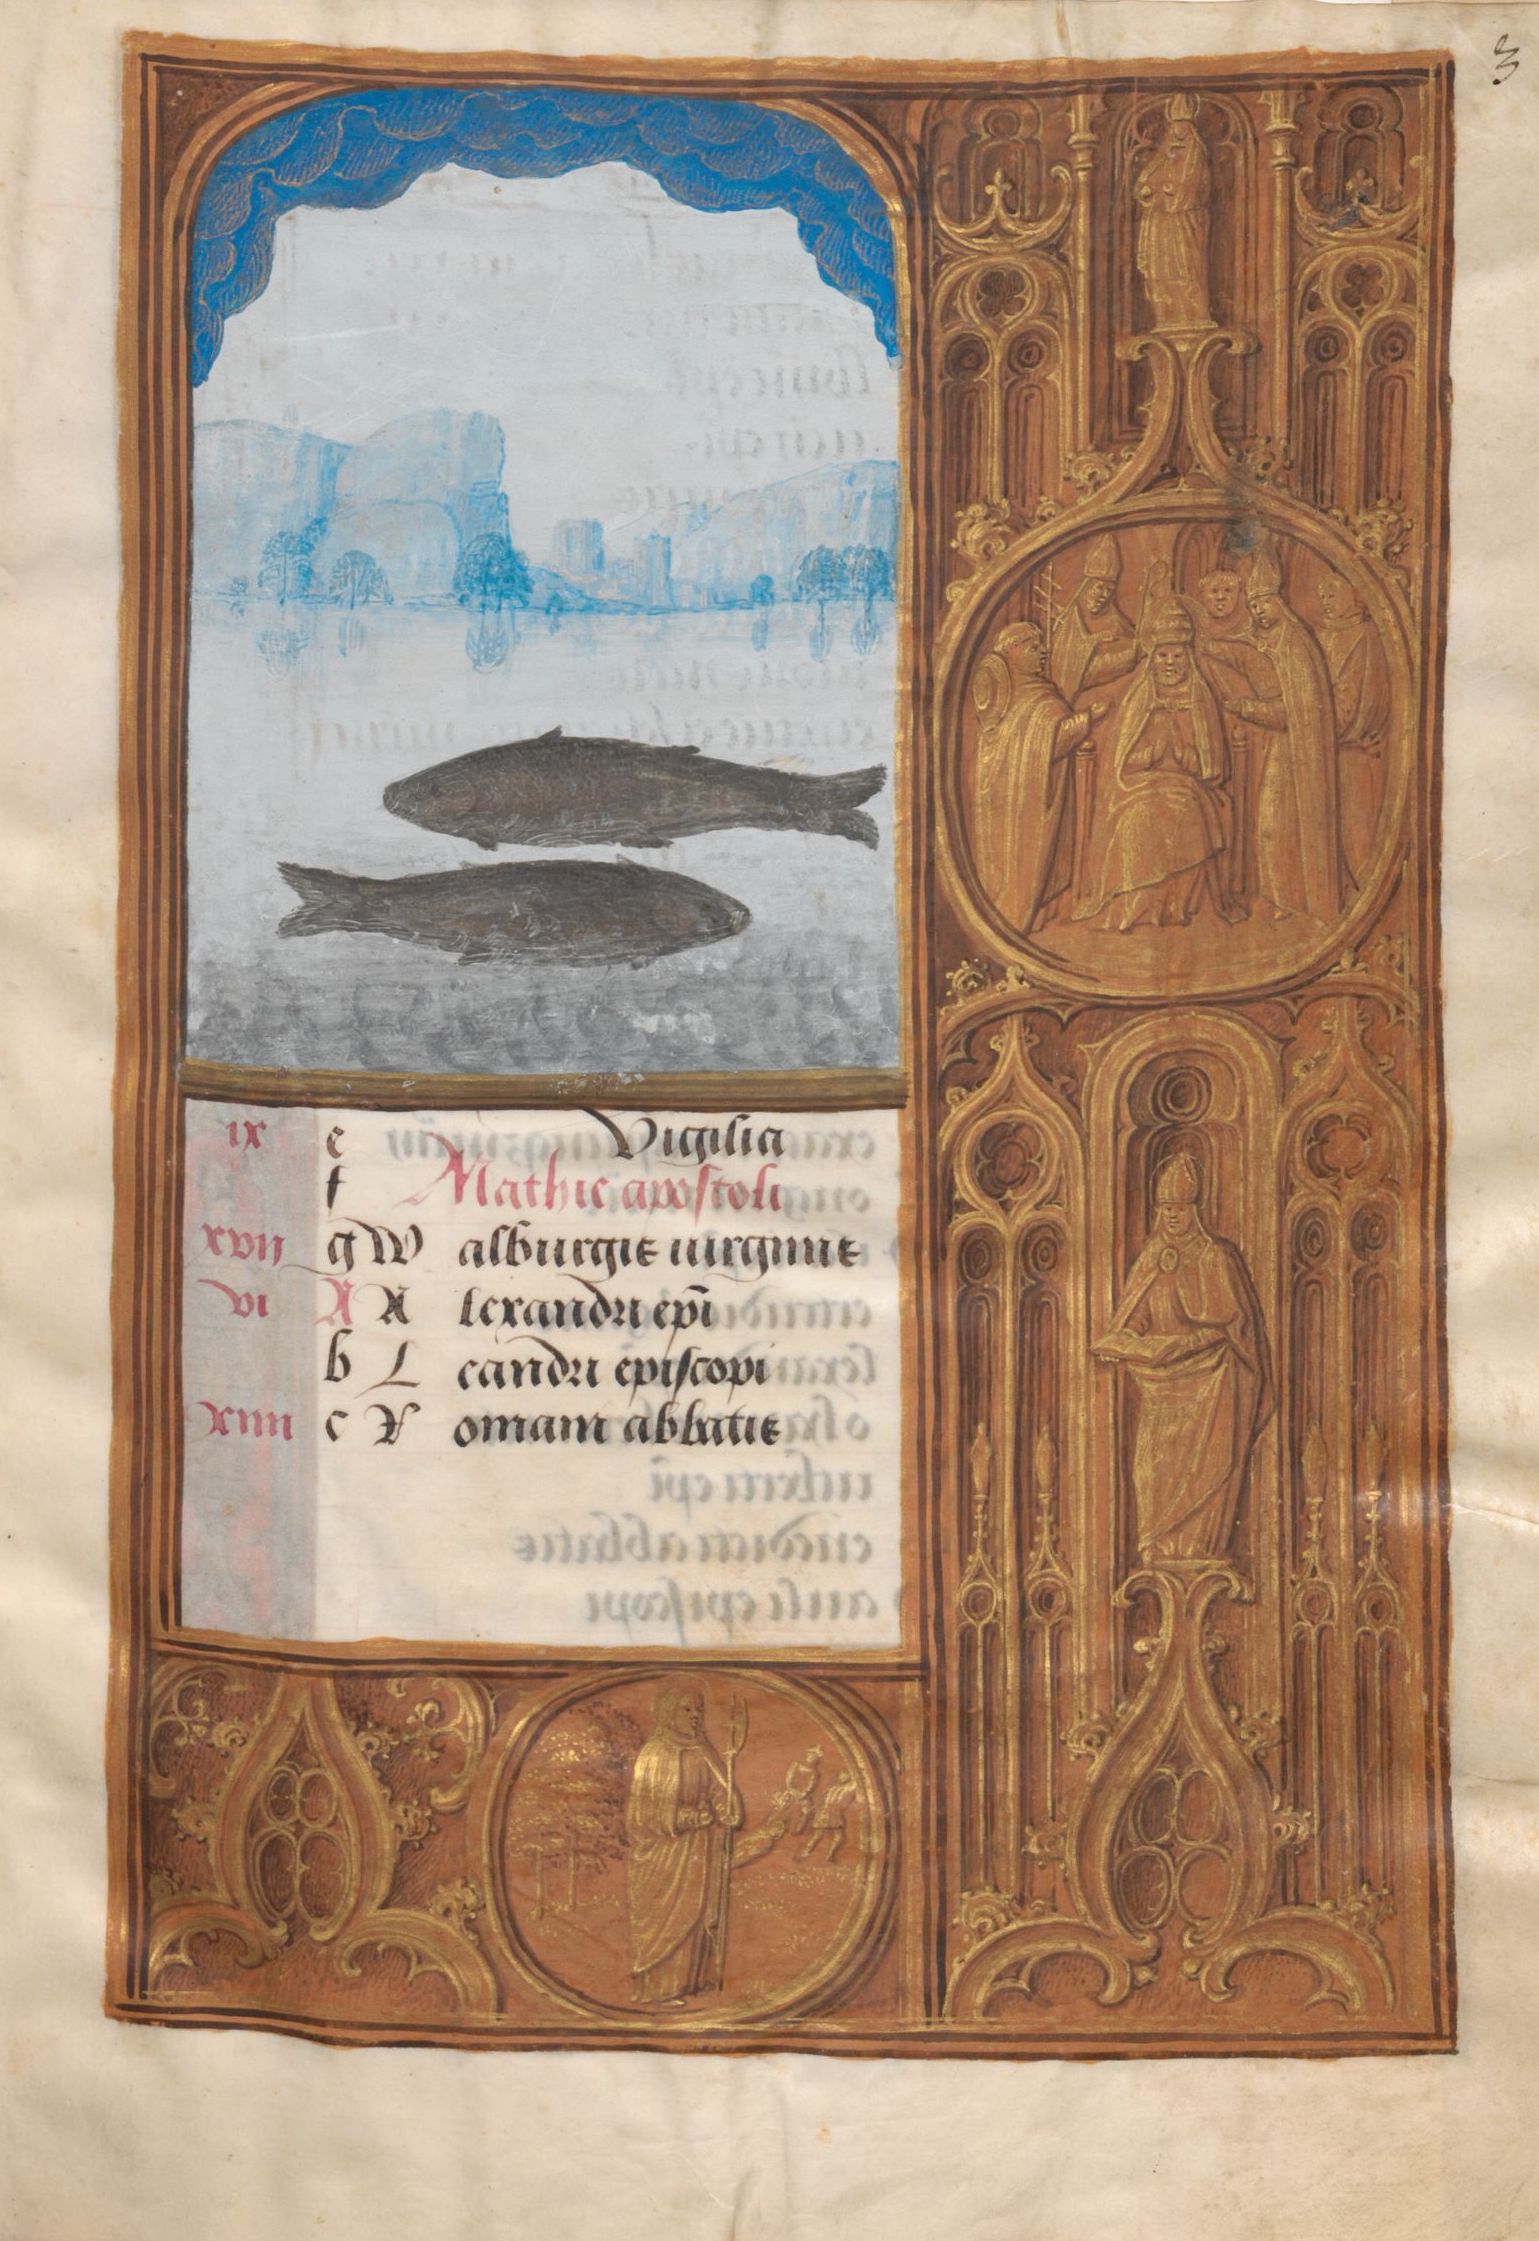 3
ix e Vigilia
f Mathie apostoli
xvii g Walburgis uirginis
vi A Alexandri epi
b Leandri episcopi
xiiii c Romani abbatis